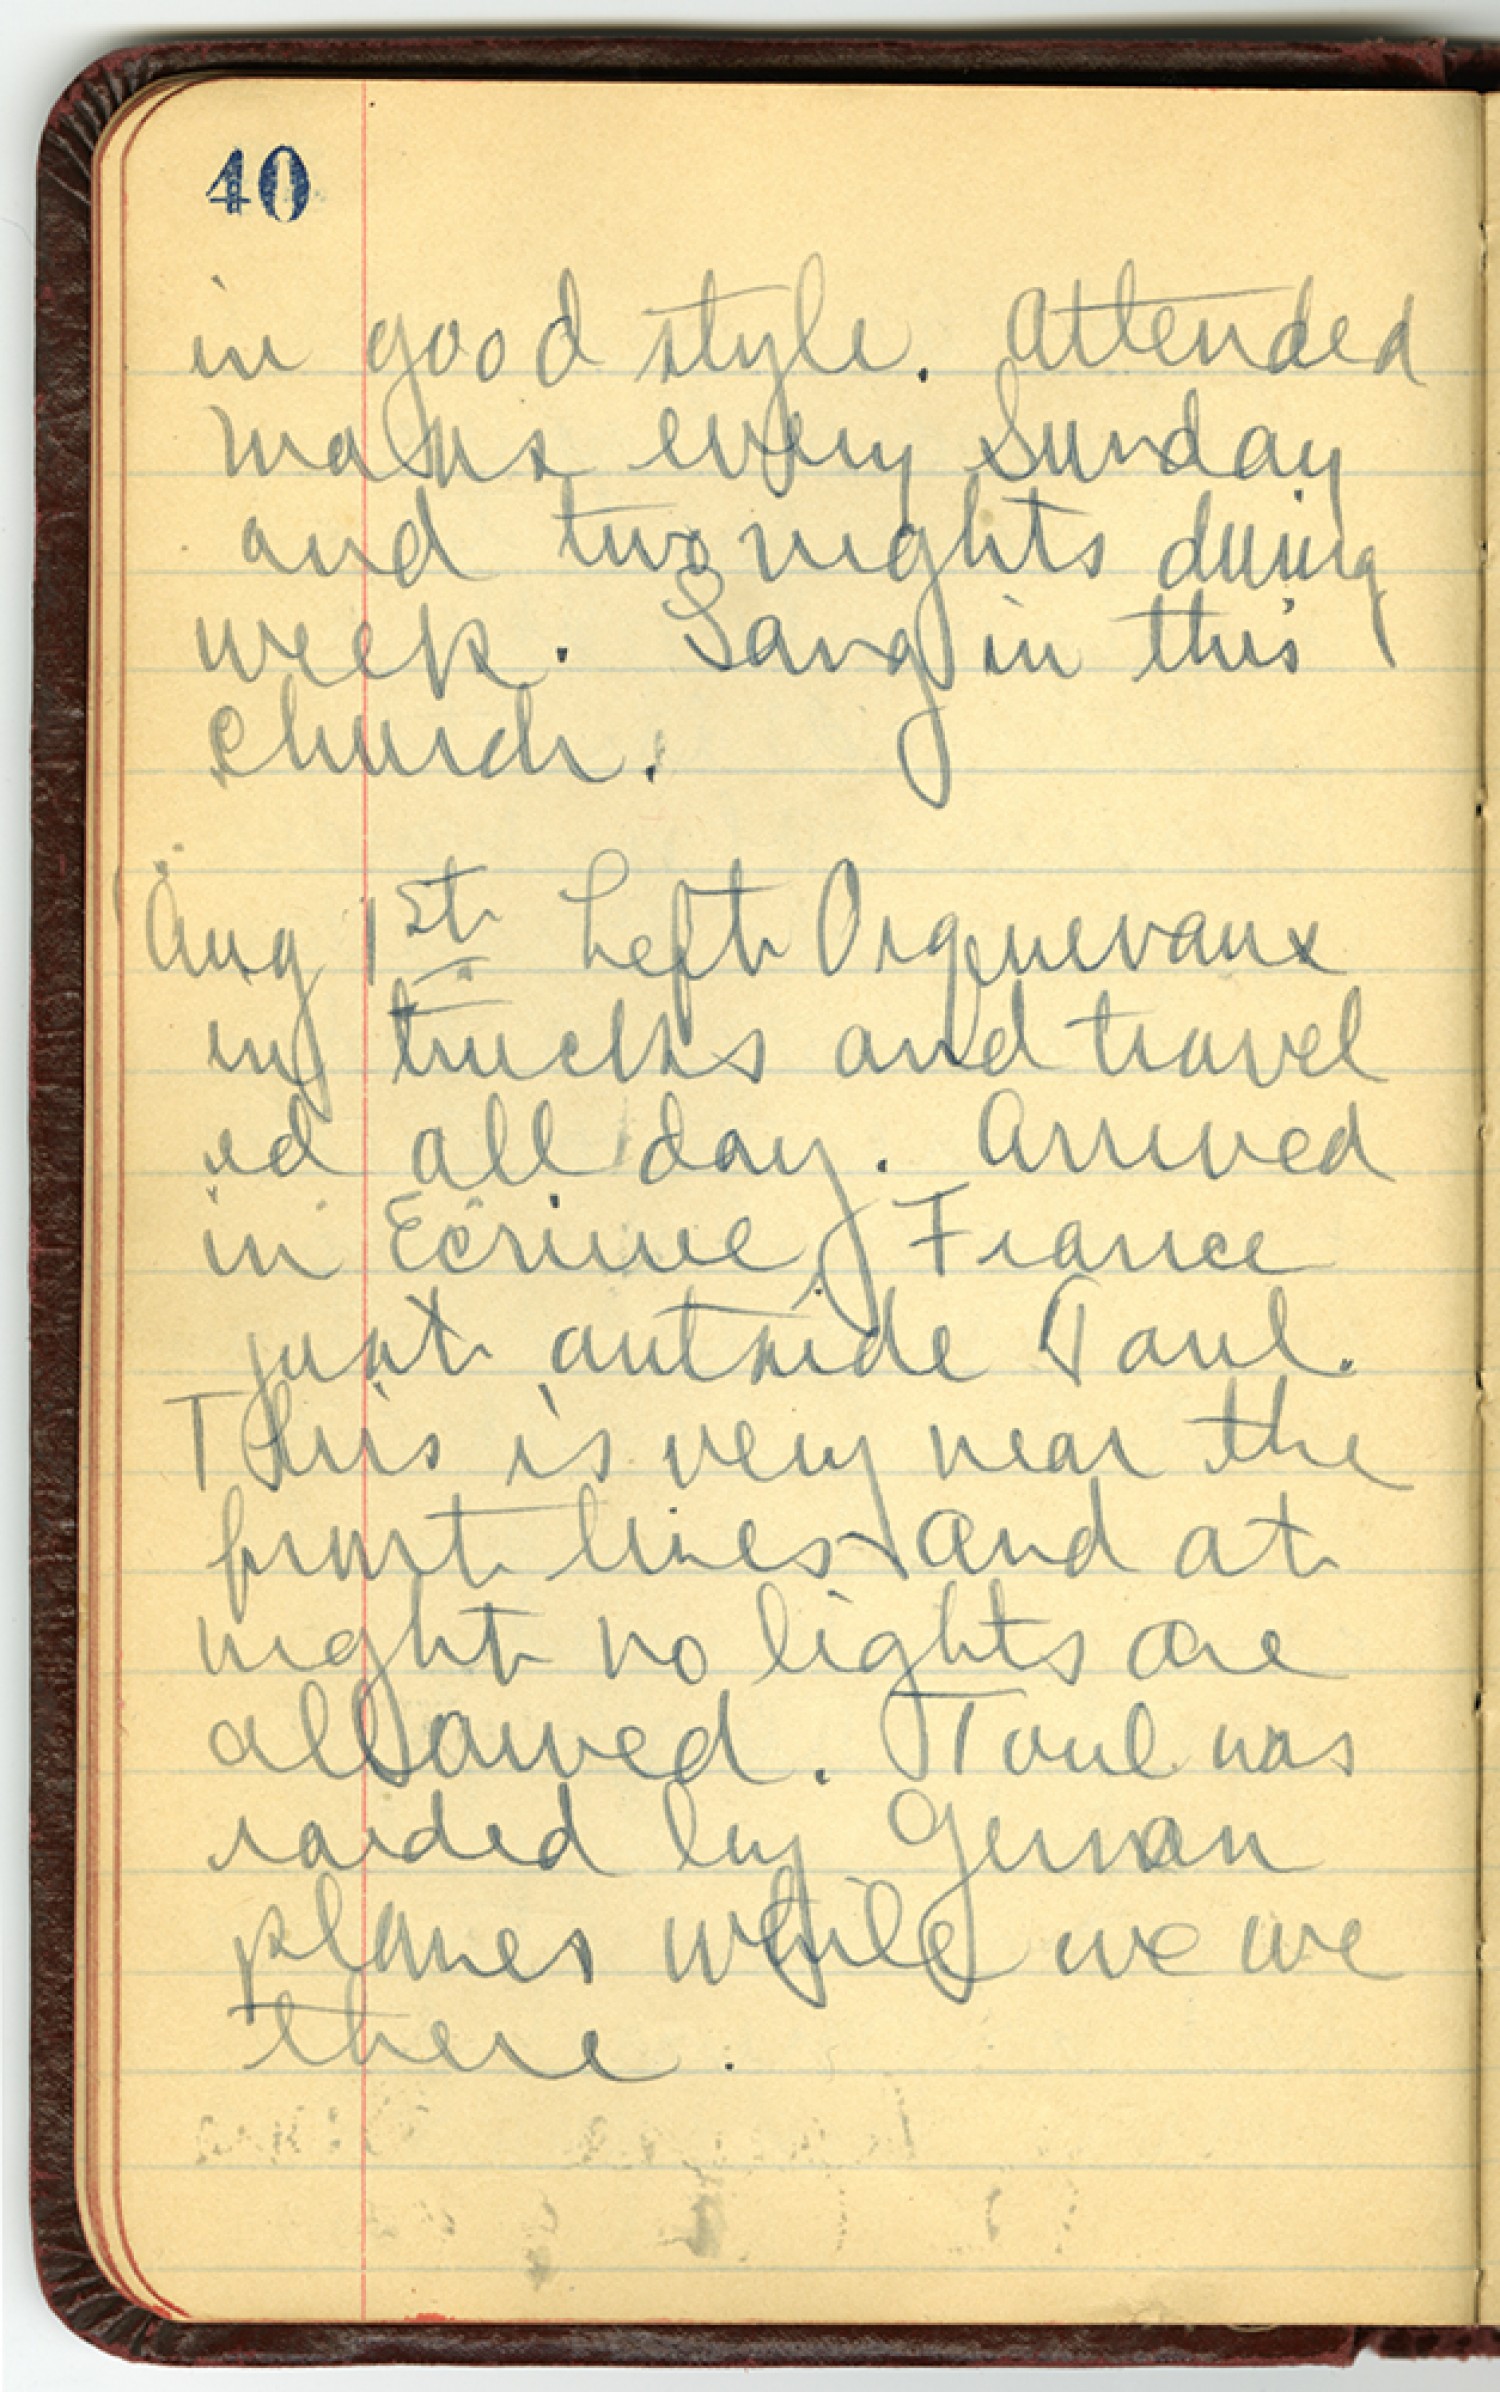 40
in good style. Attended
mass every Sunday
and two nights during
week. Sang in this
church.
Aug 1st Left Orquevaux
in trucks and travel
ed all day. Arrived
in Ecrime, France
just outside Toul.
This is very near the
front lines and at
night no lights are
allowed. Toul was
raided by German
planes while we we
there.